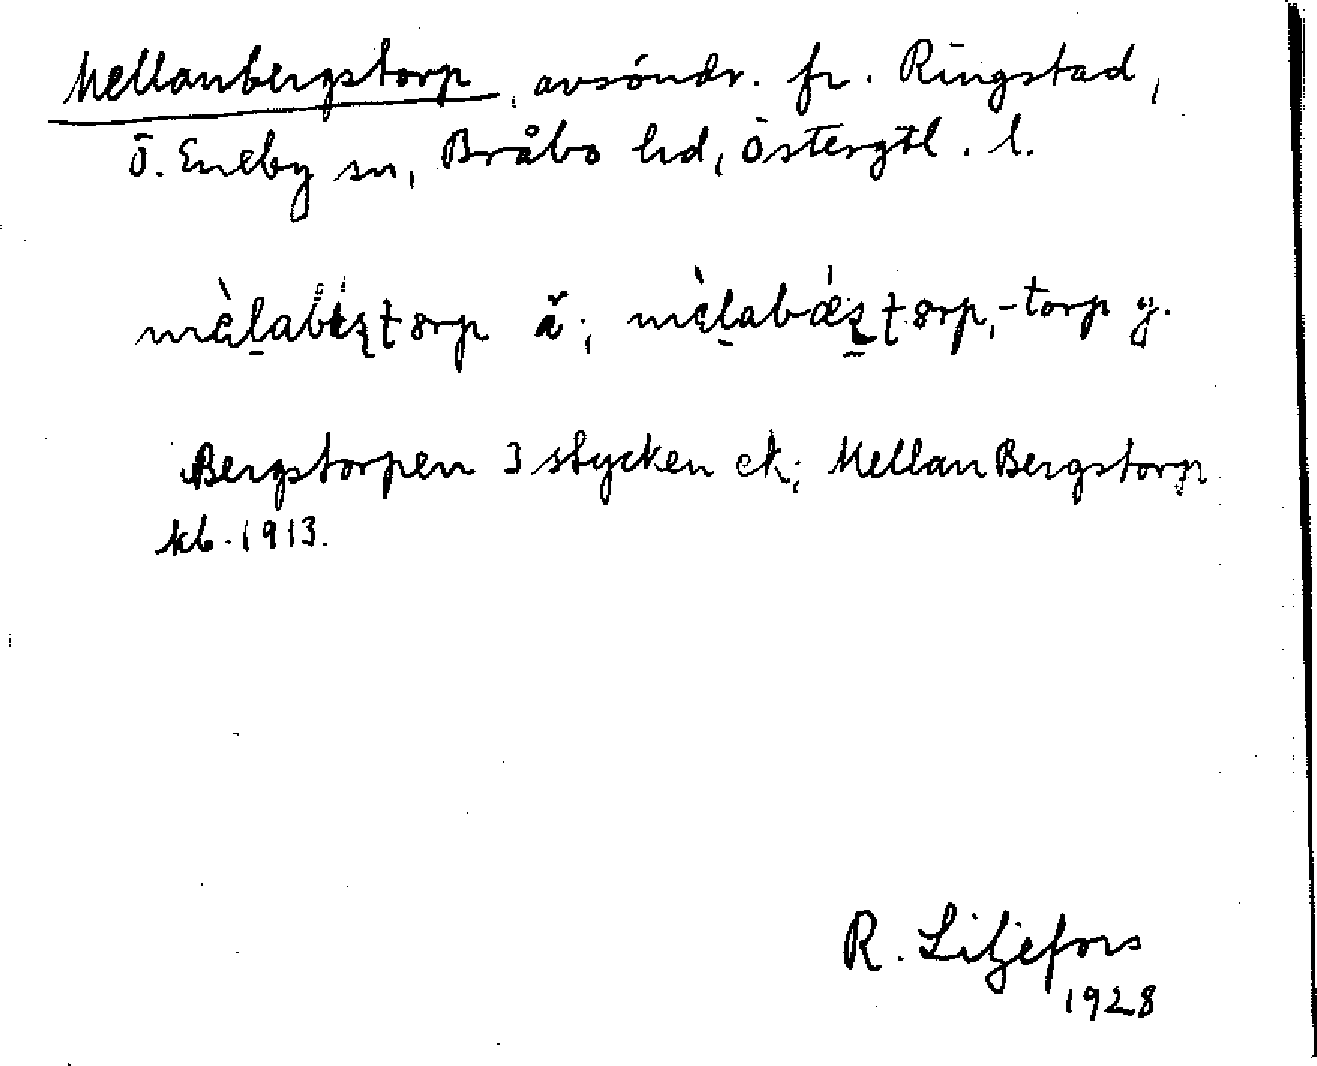 Mellanbergstorp, avsöndr. fr. Ringstad,
Ö. Eneby sn, Bråbo hd, Östergtl. l.
mèl̠abǽʂʈorp ä; mèl̠abǽʂʈorp, -torp y.
Bergstorpen 3 stycken ek; Mellan Bergstorp
kb. 1913.
R. Liljefors
1928